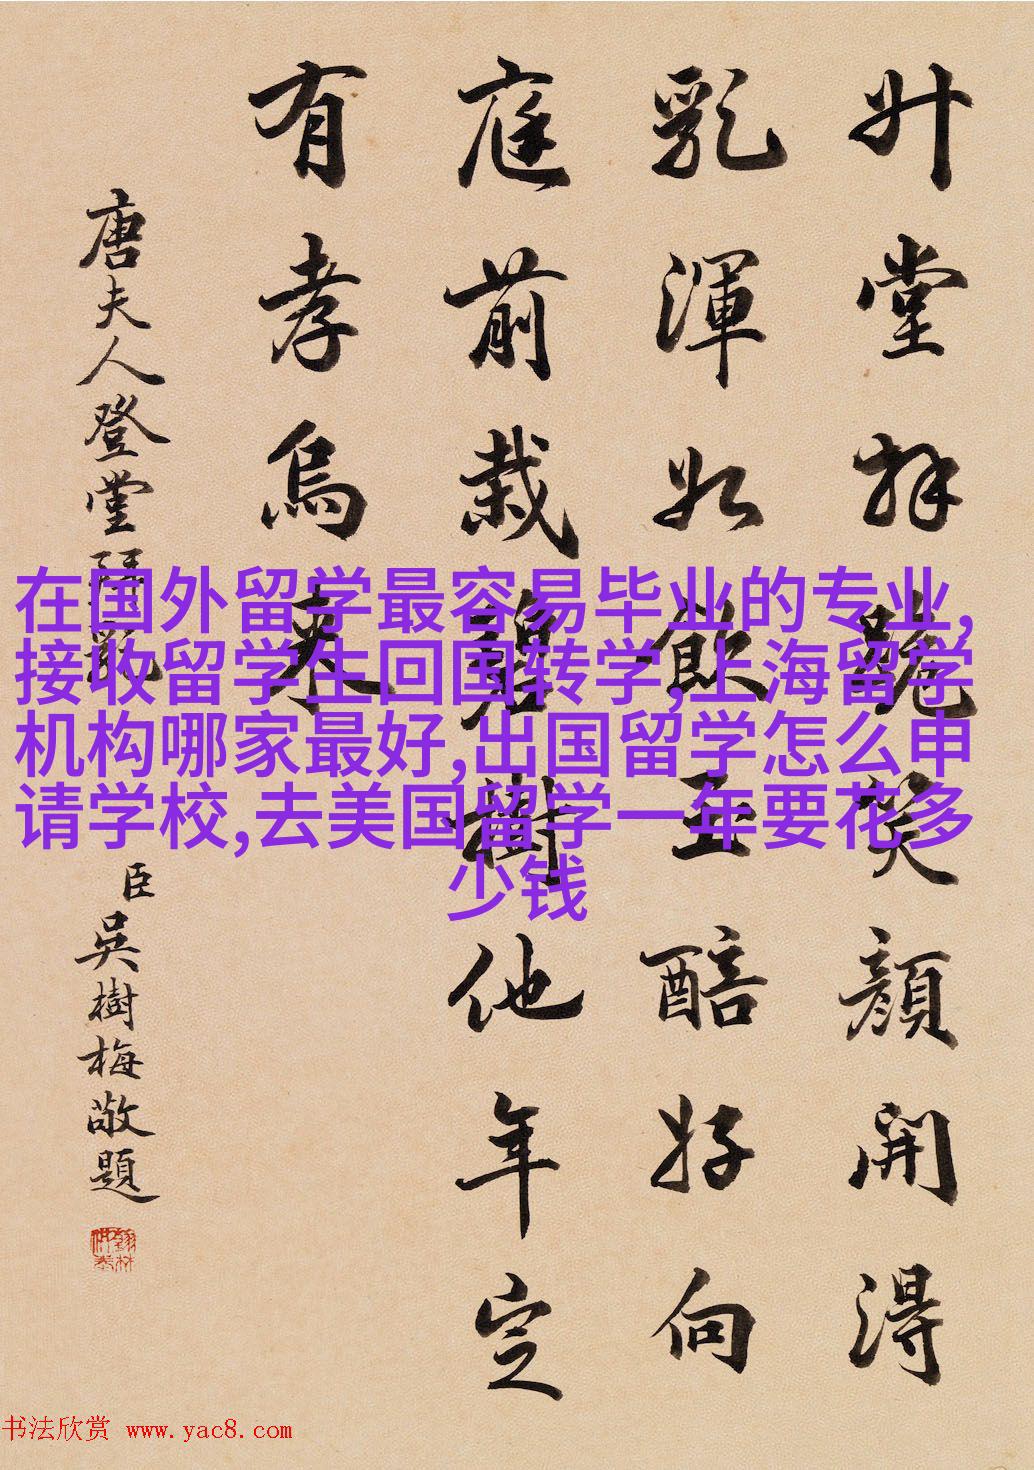 升堂拜姥笑顔開得
乳渾如飲玉醅好向
庭前栽碧樹他年定
有孝烏來
唐夫人登堂
乳
臣吳樹梅敬題
在国外留学最容易毕业的专业,
接收留学生回国转学,上海留学
机构哪家最好,出国留学怎么申
请学校,去美国留学一年要花多
少钱
书法欣赏 www.yac8.com